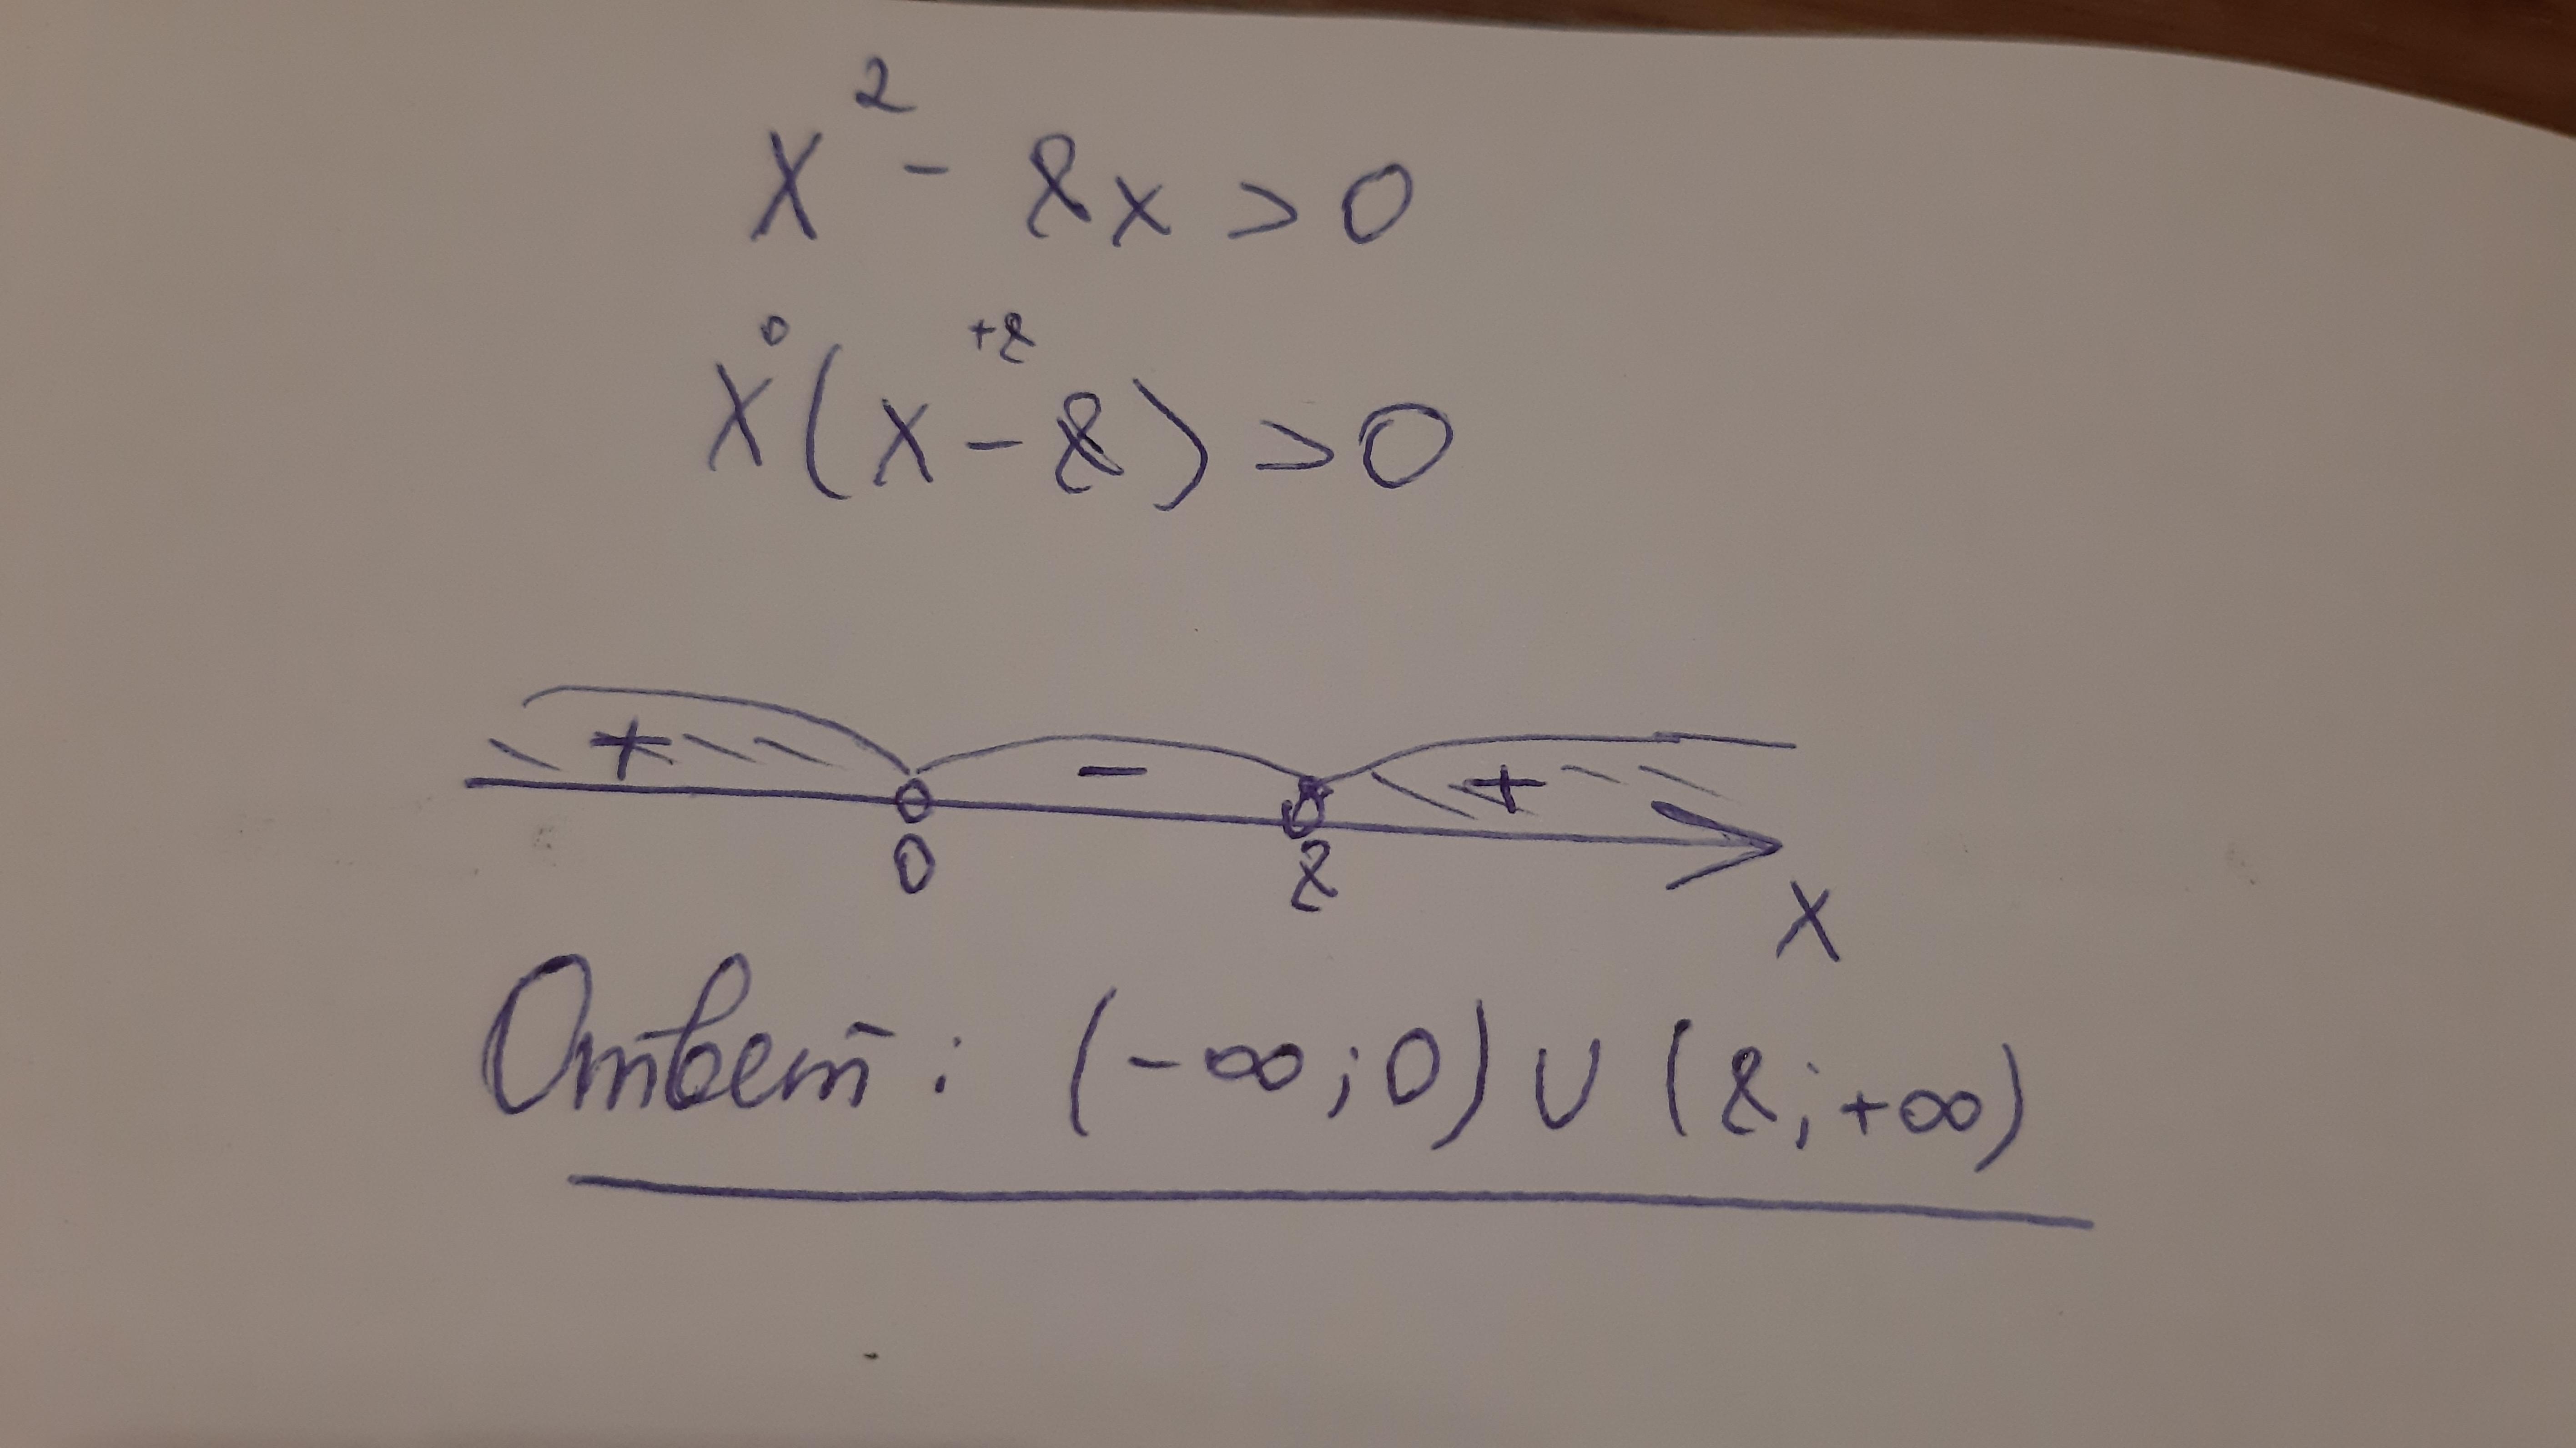 x² - 8x > 0
0 +8
x(x - 8) > 0
+ - +
0 8
x
Ответ: (-∞; 0) ∪ (8; +∞)